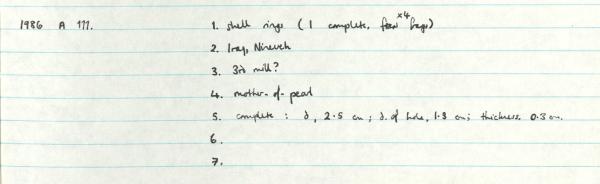 1986 A 111. 1. shell rings (1 complete, x4 frags)
2. Iraq, Nineveh
3. 3rd mill?
4. mother-of-pearl
5. complete : d, 2.5 cm ; d. of hole, 1.3 cm ; thickness. 0.3 cm.
6.
7.